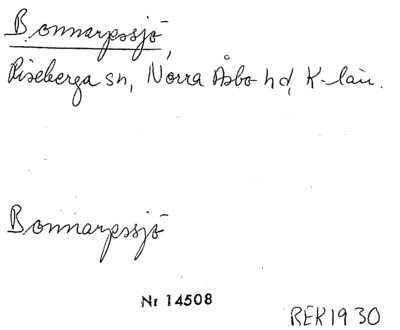 Bonnarpssjö,
Riseberga sn, Norra Åsbo hd, K-län.
Bonnarpssjö
Nr 14508
REK1930